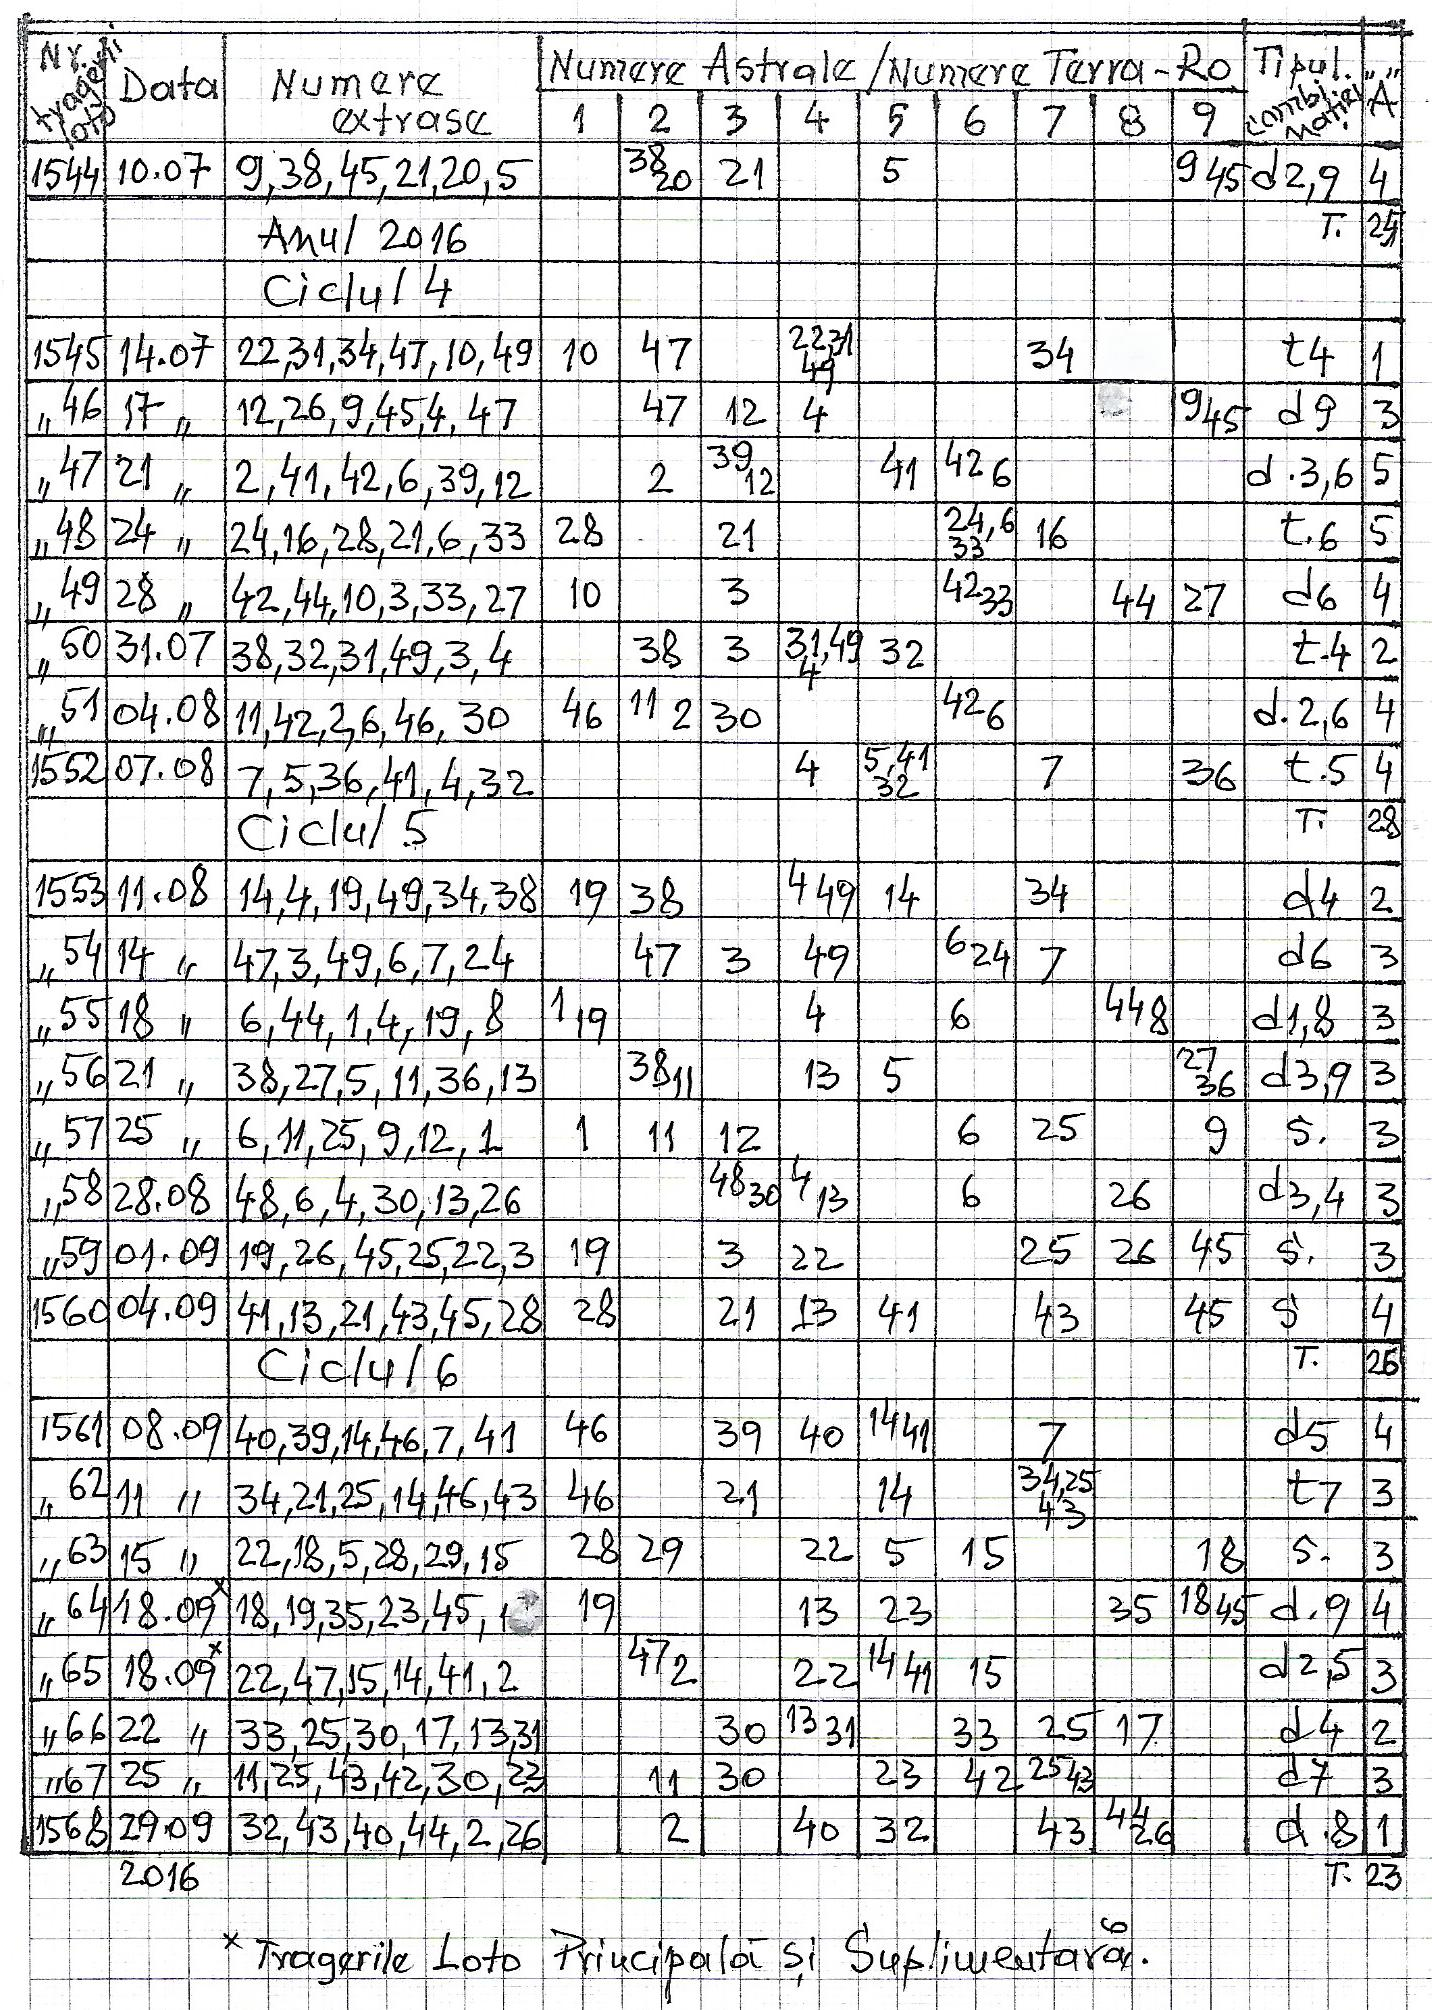 Nr. tragerii loto Data Numere extrase Numere Astrale /Numere Terra-Ro Tipul combinației "A"
1 2 3 4 5 6 7 8 9
1544 10.07 9,38,45,21,20,5 38 20 21 5 9 45 d2,9 4
Anul 2016 T. 25
Ciclul 4
1545 14.07 22,31,34,47,10,49 10 47 22,31 49 34 t4 1
"46 17 " 12,26,9,45,4,47 47 12 4 9 45 d9 3
"47 21 " 2,41,42,6,39,12 2 39 12 41 42 6 d.3,6 5
"48 24 " 24,16,28,21,6,33 28 21 24,6 33 16 t.6 5
"49 28 " 42,44,10,3,33,27 10 3 42 33 44 27 d6 4
"50 31.07 38,32,31,49,3,4 38 3 31,49 4 32 t.4 2
"51 04.08 11,42,2,6,46,30 46 11 2 30 42 6 d.2,6 4
1552 07.08 7,5,36,41,4,32 4 5,41 32 7 36 t.5 4
Ciclul 5 T. 28
1553 11.08 14,4,19,49,34,38 19 38 4 49 14 34 d4 2
"54 14 " 47,3,49,6,7,24 47 3 49 6 24 7 d6 3
"55 18 " 6,44,1,4,19,8 1 19 4 6 44 8 d1,8 3
"56 21 " 38,27,5,11,36,13 38 11 13 5 27 36 d3,9 3
"57 25 " 6,11,25,9,12,1 1 11 12 6 25 9 s. 3
"58 28.08 48,6,4,30,13,26 48 30 4 13 6 26 d3,4 3
"59 01.09 19,26,45,25,22,3 19 3 22 25 26 45 s. 3
1560 04.09 41,13,21,43,45,28 28 21 13 41 43 45 s 4
Ciclul 6 T. 26
1561 08.09 40,39,14,46,7,41 46 39 40 14 41 7 d5 4
"62 11 " 34,21,25,14,46,43 46 21 14 34,25 43 t7 3
"63 15 " 22,18,5,28,29,15 28 29 22 5 15 18 s. 3
"64 18.09 x 18,19,35,23,45,1 19 13 23 35 18 45 d.9 4
"65 18.09 x 22,47,15,14,41,2 47 2 22 14 41 15 d2,5 3
"66 22 " 33,25,30,17,13,31 30 13 31 33 25 17 d4 2
"67 25 " 11,25,43,42,30,23 11 30 23 42 25 43 d7 3
1568 29.09 32,43,40,44,2,26 2 40 32 43 44 26 d.8 1
2016 T. 23
x Tragerile Loto Principală și Suplimentară.
6